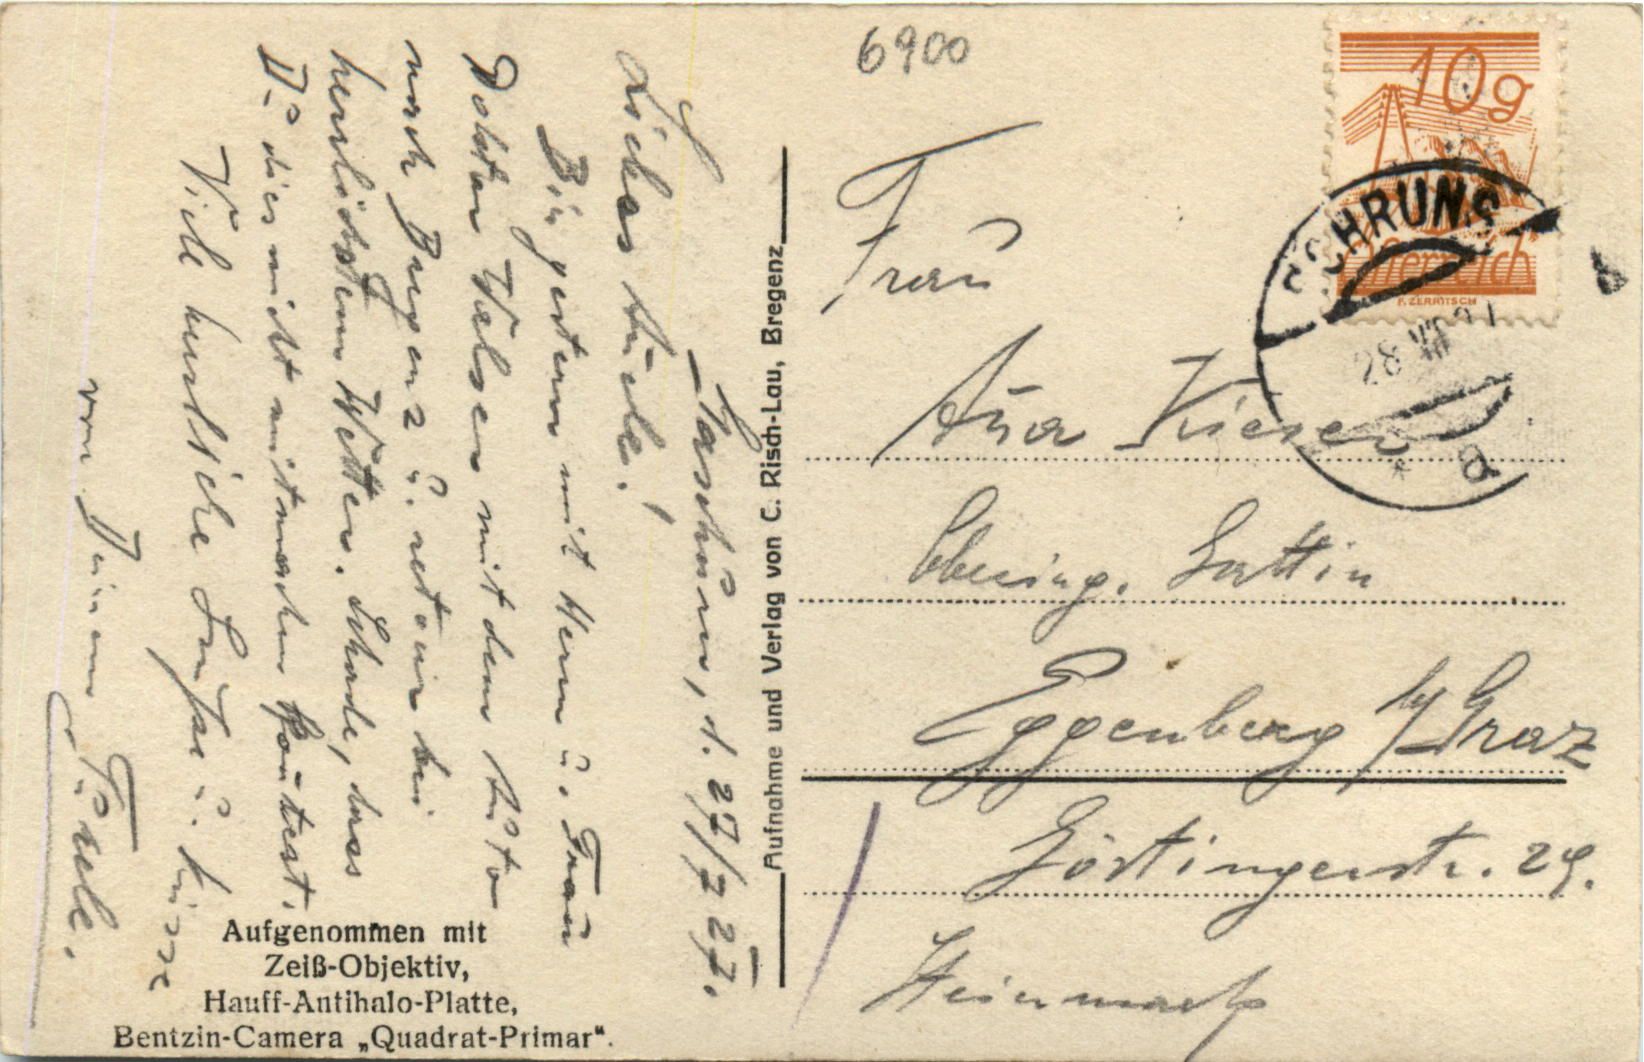 Taschüns, d. 27/7 27.
Liebes
Bin gestern mit Herrn u. Frau
Doktor mit dem Auto
nach Bregenz u. retour bei
herrlichstem Wetter. Schade, dass
Du dies nicht mitmachen konntest.
Viele herzliche Grüße u. Küsse
von Deinem
Aufgenommen mit
Zeiß-Objektiv,
Hauff-Antihalo-Platte,
Bentzin-Camera „Quadrat-Primar“.
Aufnahme und Verlag von C. Risch-Lau, Bregenz
6900
10g
Österreich
F. ZERRITSCH
SCHRUNS
28 VII 27
* B
Frau
Kieser
Obering. Gattin
Eggenberg b/ Graz
Göstingerstr. 29.
Steiermark